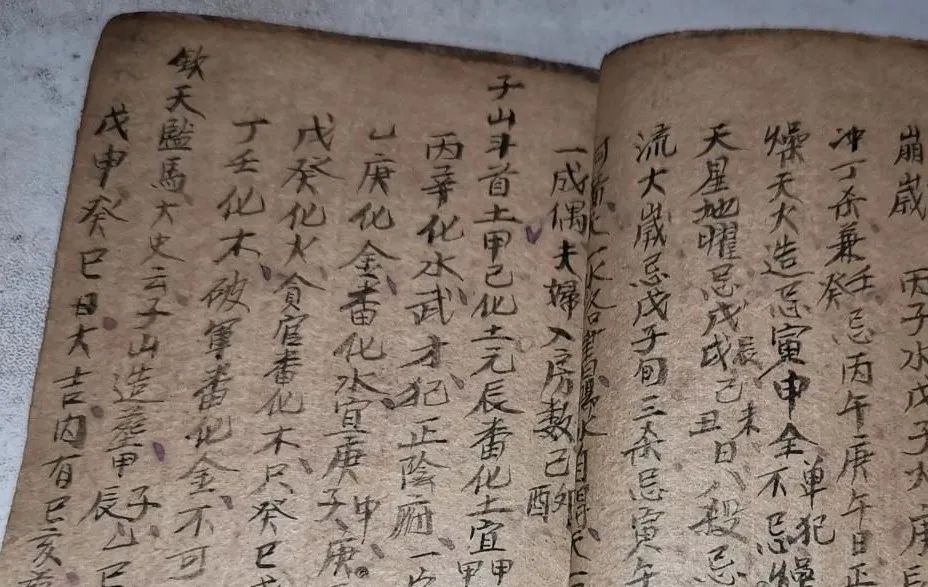 崩歲 丙子水戊子火庚
冲丁杀兼壬癸忌丙午庚午日正
燥天火造忌寅申全不忌单犯
天星地曜忌戊辰戌己丑未日八殺忌
流大歲忌戊子旬三杀忌寅午
一成偶夫婦入房数己卯酉
子山斗首土甲己化土元辰番化土宜甲
丙辛化水武才犯正陰府一
乙庚化金番化水宜庚子庚申
戊癸化火貪官番化木只癸巳
丁壬化木破軍番化金不可
欽天監馬大史云子山造葬甲子辰乙巳
戊申癸巳日大吉内有巳亥